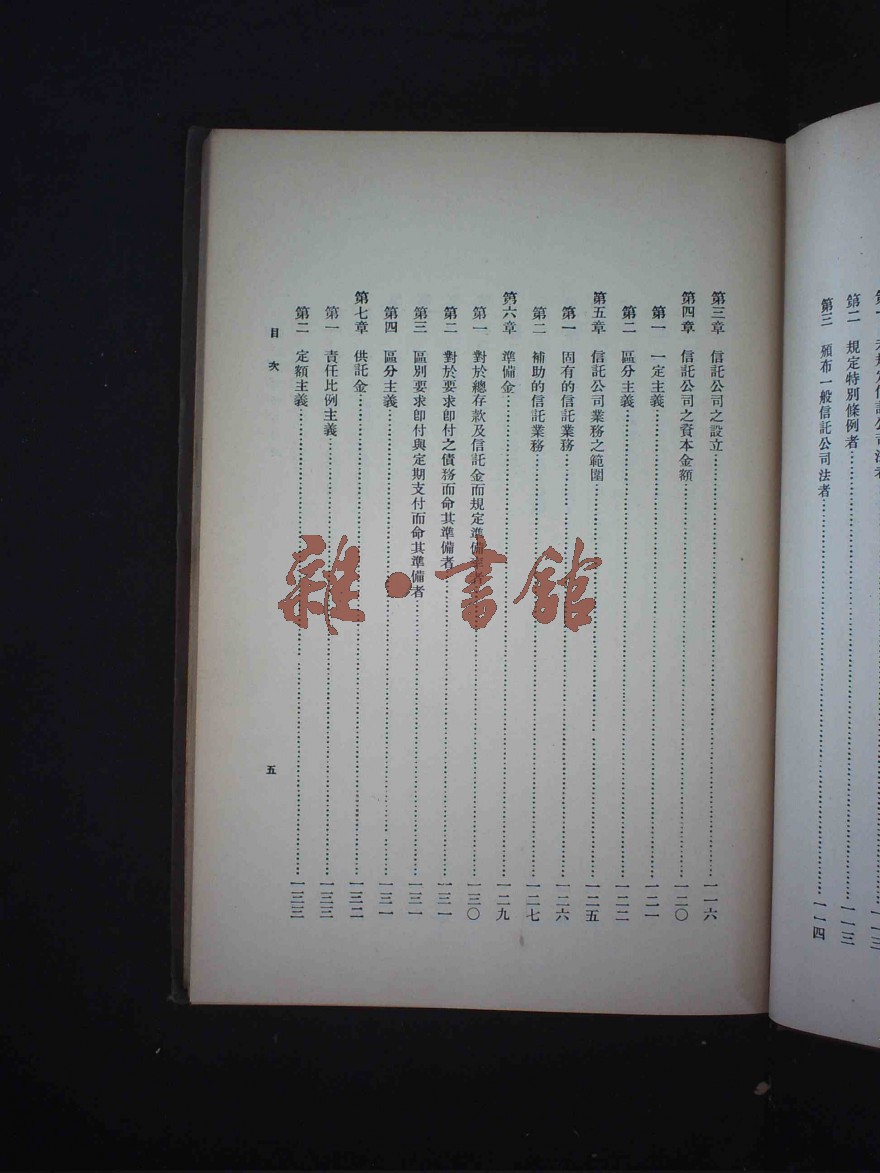 第二　規定特別條例者……一一三
第三　頒布一般信託公司法者……一一四
第三章　信託公司之設立……一一六
第四章　信託公司之資本金額……一二〇
第一　一定主義……一二一
第二　區分主義……一二二
第五章　信託公司業務之範圍……一二五
第一　固有的信託業務……一二六
第二　補助的信託業務……一二七
第六章　準備金……一二九
第一　對於總存款及信託金而規定準備率者……一三〇
第二　對於要求卽付之債務而命其準備者……一三一
第三　區別要求卽付與定期支付而命其準備者……一三一
第四　區分主義……一三一
第七章　供託金……一三二
第一　責任比例主義……一三三
第二　定額主義……一三三
目次
五
雜·書館